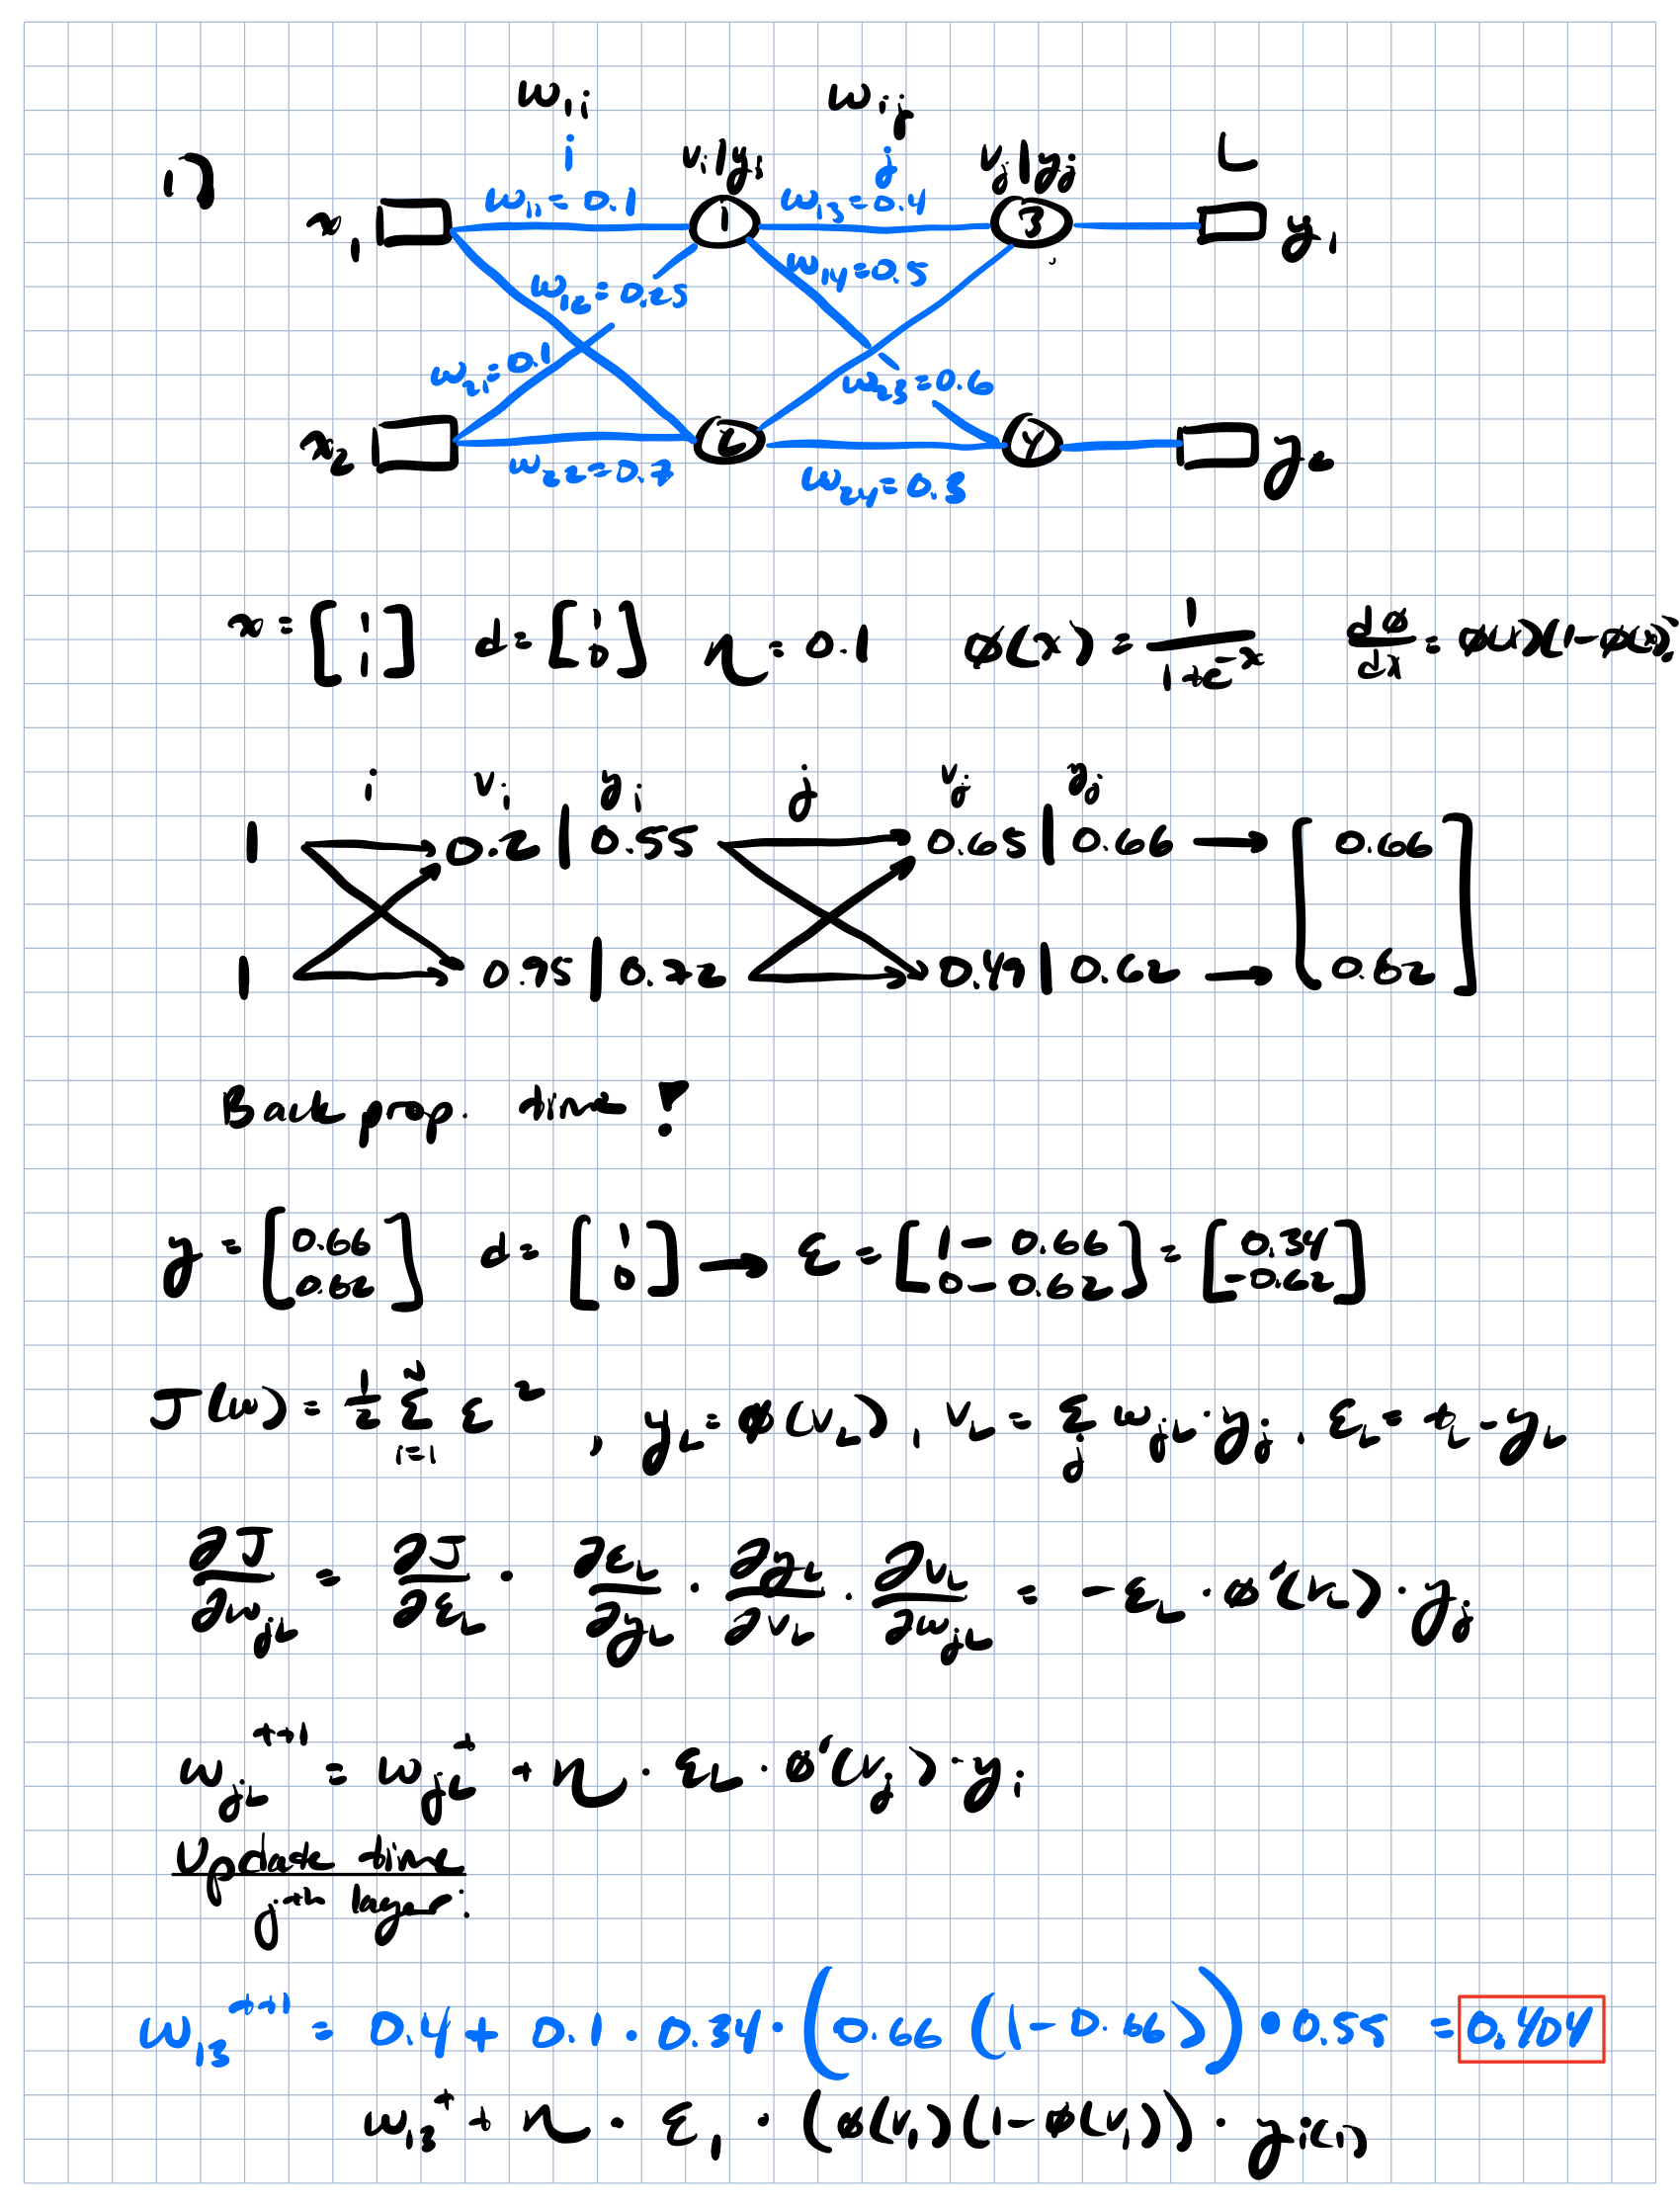 w₁ᵢ wᵢⱼ
i vᵢ|yᵢ j vⱼ|yⱼ L
1)
x₁ w₁₁=0.1 1 w₁₃=0.4 3 y₁
w₁₂=0.25 w₁₄=0.5
w₂₁=0.1 w₂₃=0.6
x₂ w₂₂=0.7 2 w₂₄=0.3 4 y₂
x = [1 1] d = [1 0] η = 0.1 φ(x) = 1/(1+e^-x) dφ/dx = φ(x)(1-φ(x))
i vᵢ yᵢ j vⱼ yⱼ
1 0.2 | 0.55 0.65 | 0.66 → [0.66
1 0.95 | 0.72 0.49 | 0.62 → 0.62]
Back prop. time!
y = [0.66 0.62] d = [1 0] → ε = [1 - 0.66 0 - 0.62] = [0.34 -0.62]
J(w) = 1/2 Σᵢ₌₁ᴺ ε², y_L = φ(v_L), v_L = Σⱼ w_jL · yⱼ, ε_L = t_L - y_L
∂J/∂w_jL = ∂J/∂ε_L · ∂ε_L/∂y_L · ∂y_L/∂v_L · ∂v_L/∂w_jL = -ε_L · φ'(v_L) · yⱼ
w_jL^t+1 = w_jL^t + η · ε_L · φ'(vⱼ) · yᵢ
Update time
jth layer:
w₁₃^t+1 = 0.4 + 0.1 · 0.34 · (0.66 (1-0.66)) · 0.55 = 0.404
w₁₃^t + η · ε₁ · (φ(v₁)(1-φ(v₁)) · y_i(1)